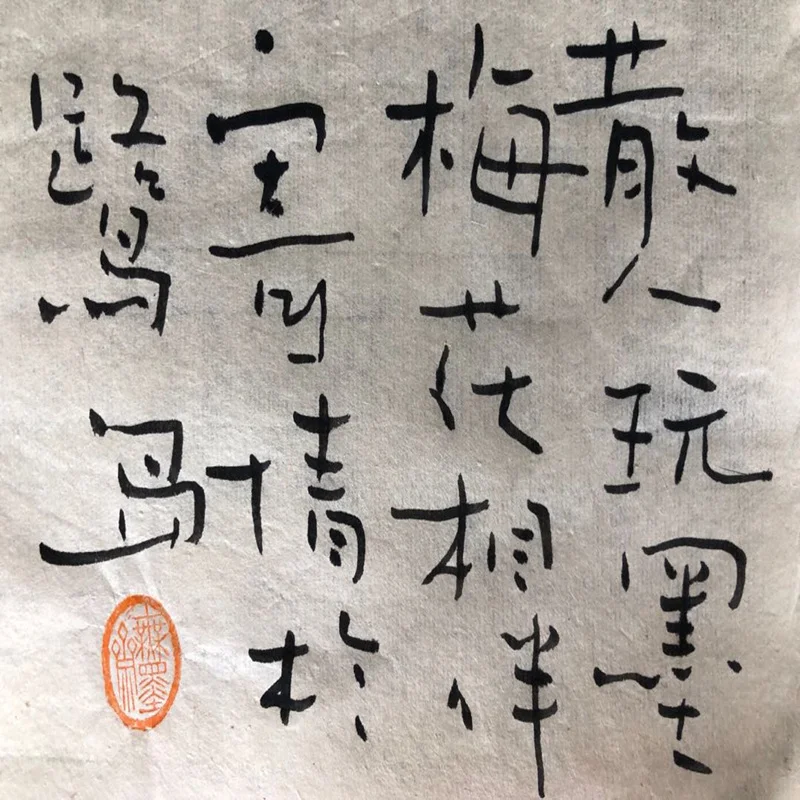 散人玩墨
梅花相伴
寄情於
鷺島